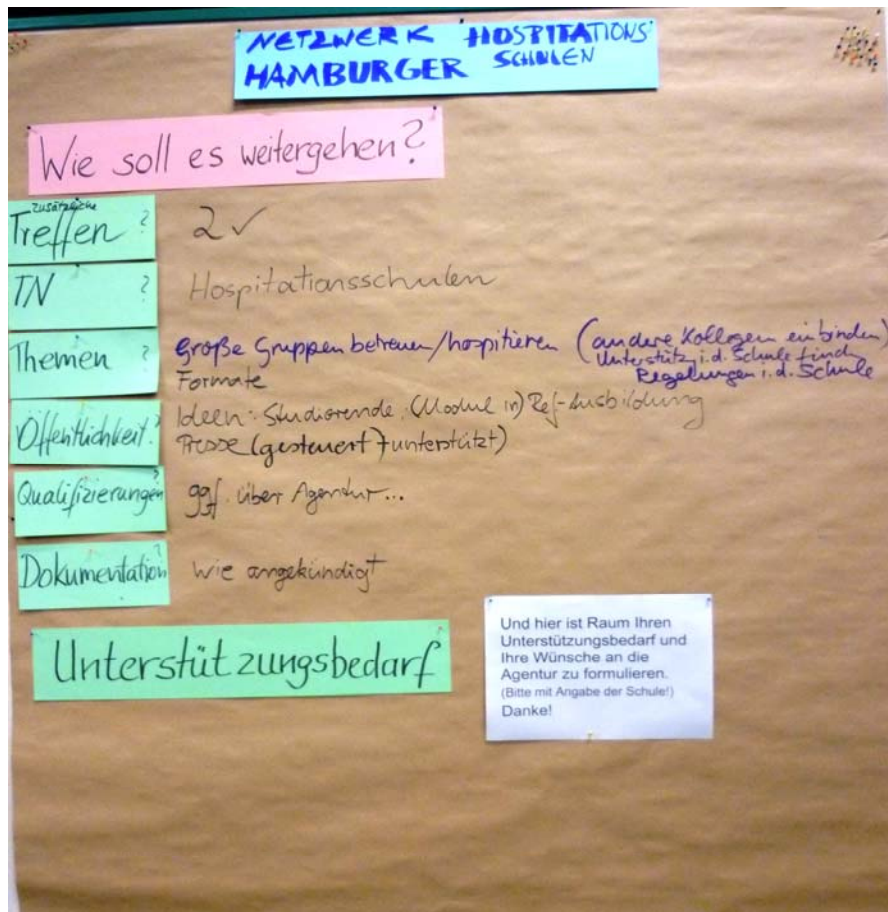 NETZWERK HOSPITATIONS
HAMBURGER SCHULEN
Wie soll es weitergehen?
zusätzliche
Treffen ? 2 ✓
TN ? Hospitationsschulen
Themen ? große Gruppen betreuen/hospitieren (andere Kollegen einbinden)
Unterstütz. i.d. Schule find
Regelungen i.d. Schule
Formate
Öffentlichkeit? Ideen: Studierende, (Module in) Ref-Ausbildung
Presse (gesteuert + unterstützt)
Qualifizierungen? ggf. über Agentur...
Dokumentation? wie angekündigt
Unterstützungsbedarf
Und hier ist Raum Ihren
Unterstützungsbedarf und
Ihre Wünsche an die
Agentur zu formulieren.
(Bitte mit Angabe der Schule!)
Danke!